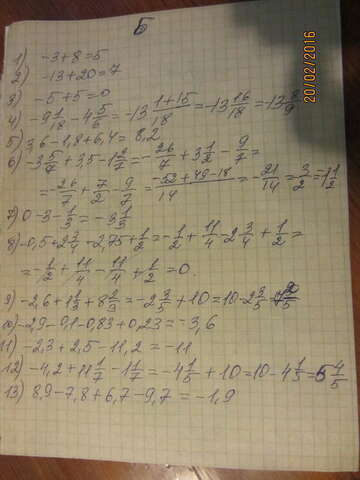 Б
20/02/2016
1) -3+8=5
2) -13+20=7
3) -5+5=0
4) -9 1/18 - 4 5/6 = -13 (1+15)/18 = -13 16/18 = -13 8/9
5) 3,6-1,8+6,4=8,2
6) -3 5/7 + 3,5 - 1 2/7 = -26/7 + 3 1/2 - 9/7 =
= -26/7 + 7/2 - 9/7 = (-52+49-18)/14 = -21/14 = 3/2 = -1 1/2
7) 0-3-1/3 = -3 1/3
8) -0,5+2 3/4-2,75+1/2 = -1/2 + 11/4 - 2 3/4 + 1/2 =
= -1/2 + 11/4 - 11/4 + 1/2 = 0.
9) -2,6 + 1 1/3 + 8 2/3 = -2 3/5 + 10 = 10 - 2 3/5
10) -2,9-9,1-0,83+0,23=-3,6
11) -2,3+2,5-11,2=-11
12) -4,2 + 11 1/7 - 1 1/7 = -4 1/5 + 10 = 10 - 4 1/5 = 5 4/5
13) 8,9-7,8+6,7-9,7=-1,9